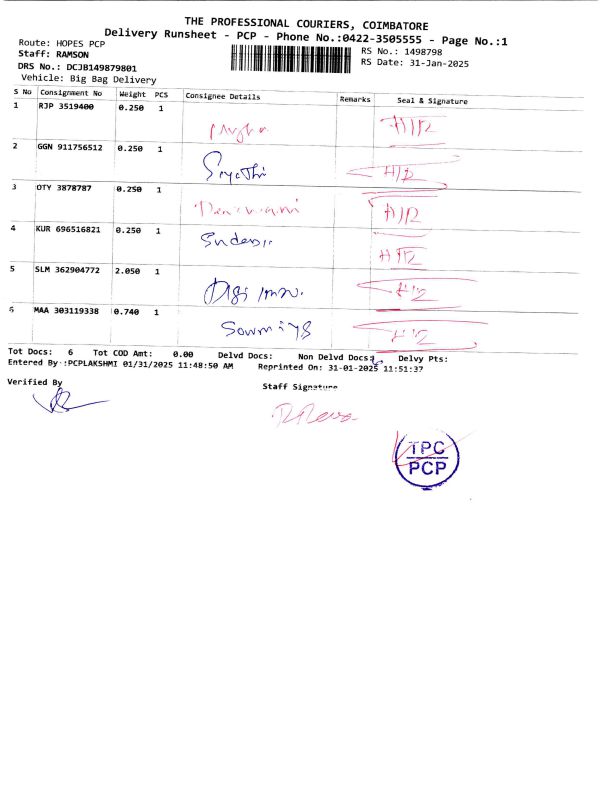 THE PROFESSIONAL COURIERS, COIMBATORE
Delivery Runsheet - PCP - Phone No.:0422-3505555 - Page No.:1
Route: HOPES PCP
Staff: RAMSON
DRS No.: DCJB149879801
Vehicle: Big Bag Delivery
RS No.: 1498798
RS Date: 31-Jan-2025
S No Consignment No Weight PCS Consignee Details Remarks Seal & Signature
1 RJP 3519400 0.250 1
2 GGN 911756512 0.250 1
H/R
3 OTY 3878787 0.250 1
4 KUR 696516821 0.250 1
5 SLM 362904772 2.050 1
6 MAA 303119338 0.740 1
Sowmiya
Tot Docs: 6 Tot COD Amt: 0.00 Delvd Docs: Non Delvd Docs: Delvy Pts:
Entered By :PCPLAKSHMI 01/31/2025 11:48:50 AM Reprinted On: 31-01-2025 11:51:37
Verified By
Staff Signature
TPC
PCP